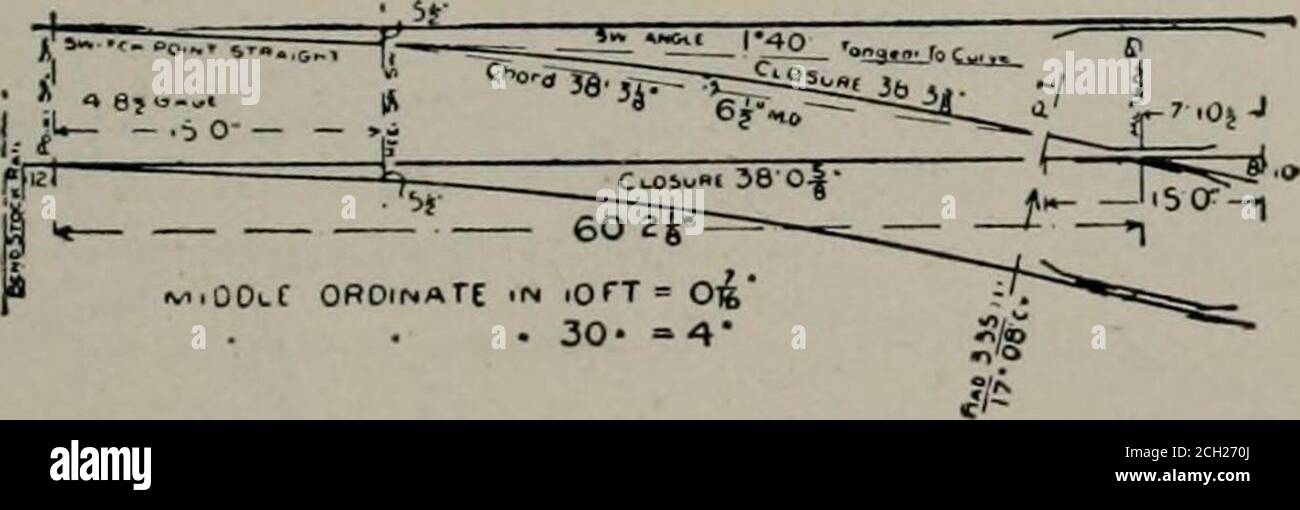 5½"
SWITCH POINT STRAIGHT
SW ANGLE 1°40' Tangent To Curve
Chord 38' 3⅛"
CLOSURE 38 3⅛"
6½" M.O
4 8½ GAUGE
15 0"
7' 10½
BEND STOCK RAIL
12
CLOSURE 38' 0⅝"
5½"
15' 0"
8
60 2⅛"
MIDDLE ORDINATE IN 10 FT = 0 7/16"
" " " 30 " = 4"
RAD 335
17° 08' C.
alamy
Image ID: 2CH270J
www.alamy.com